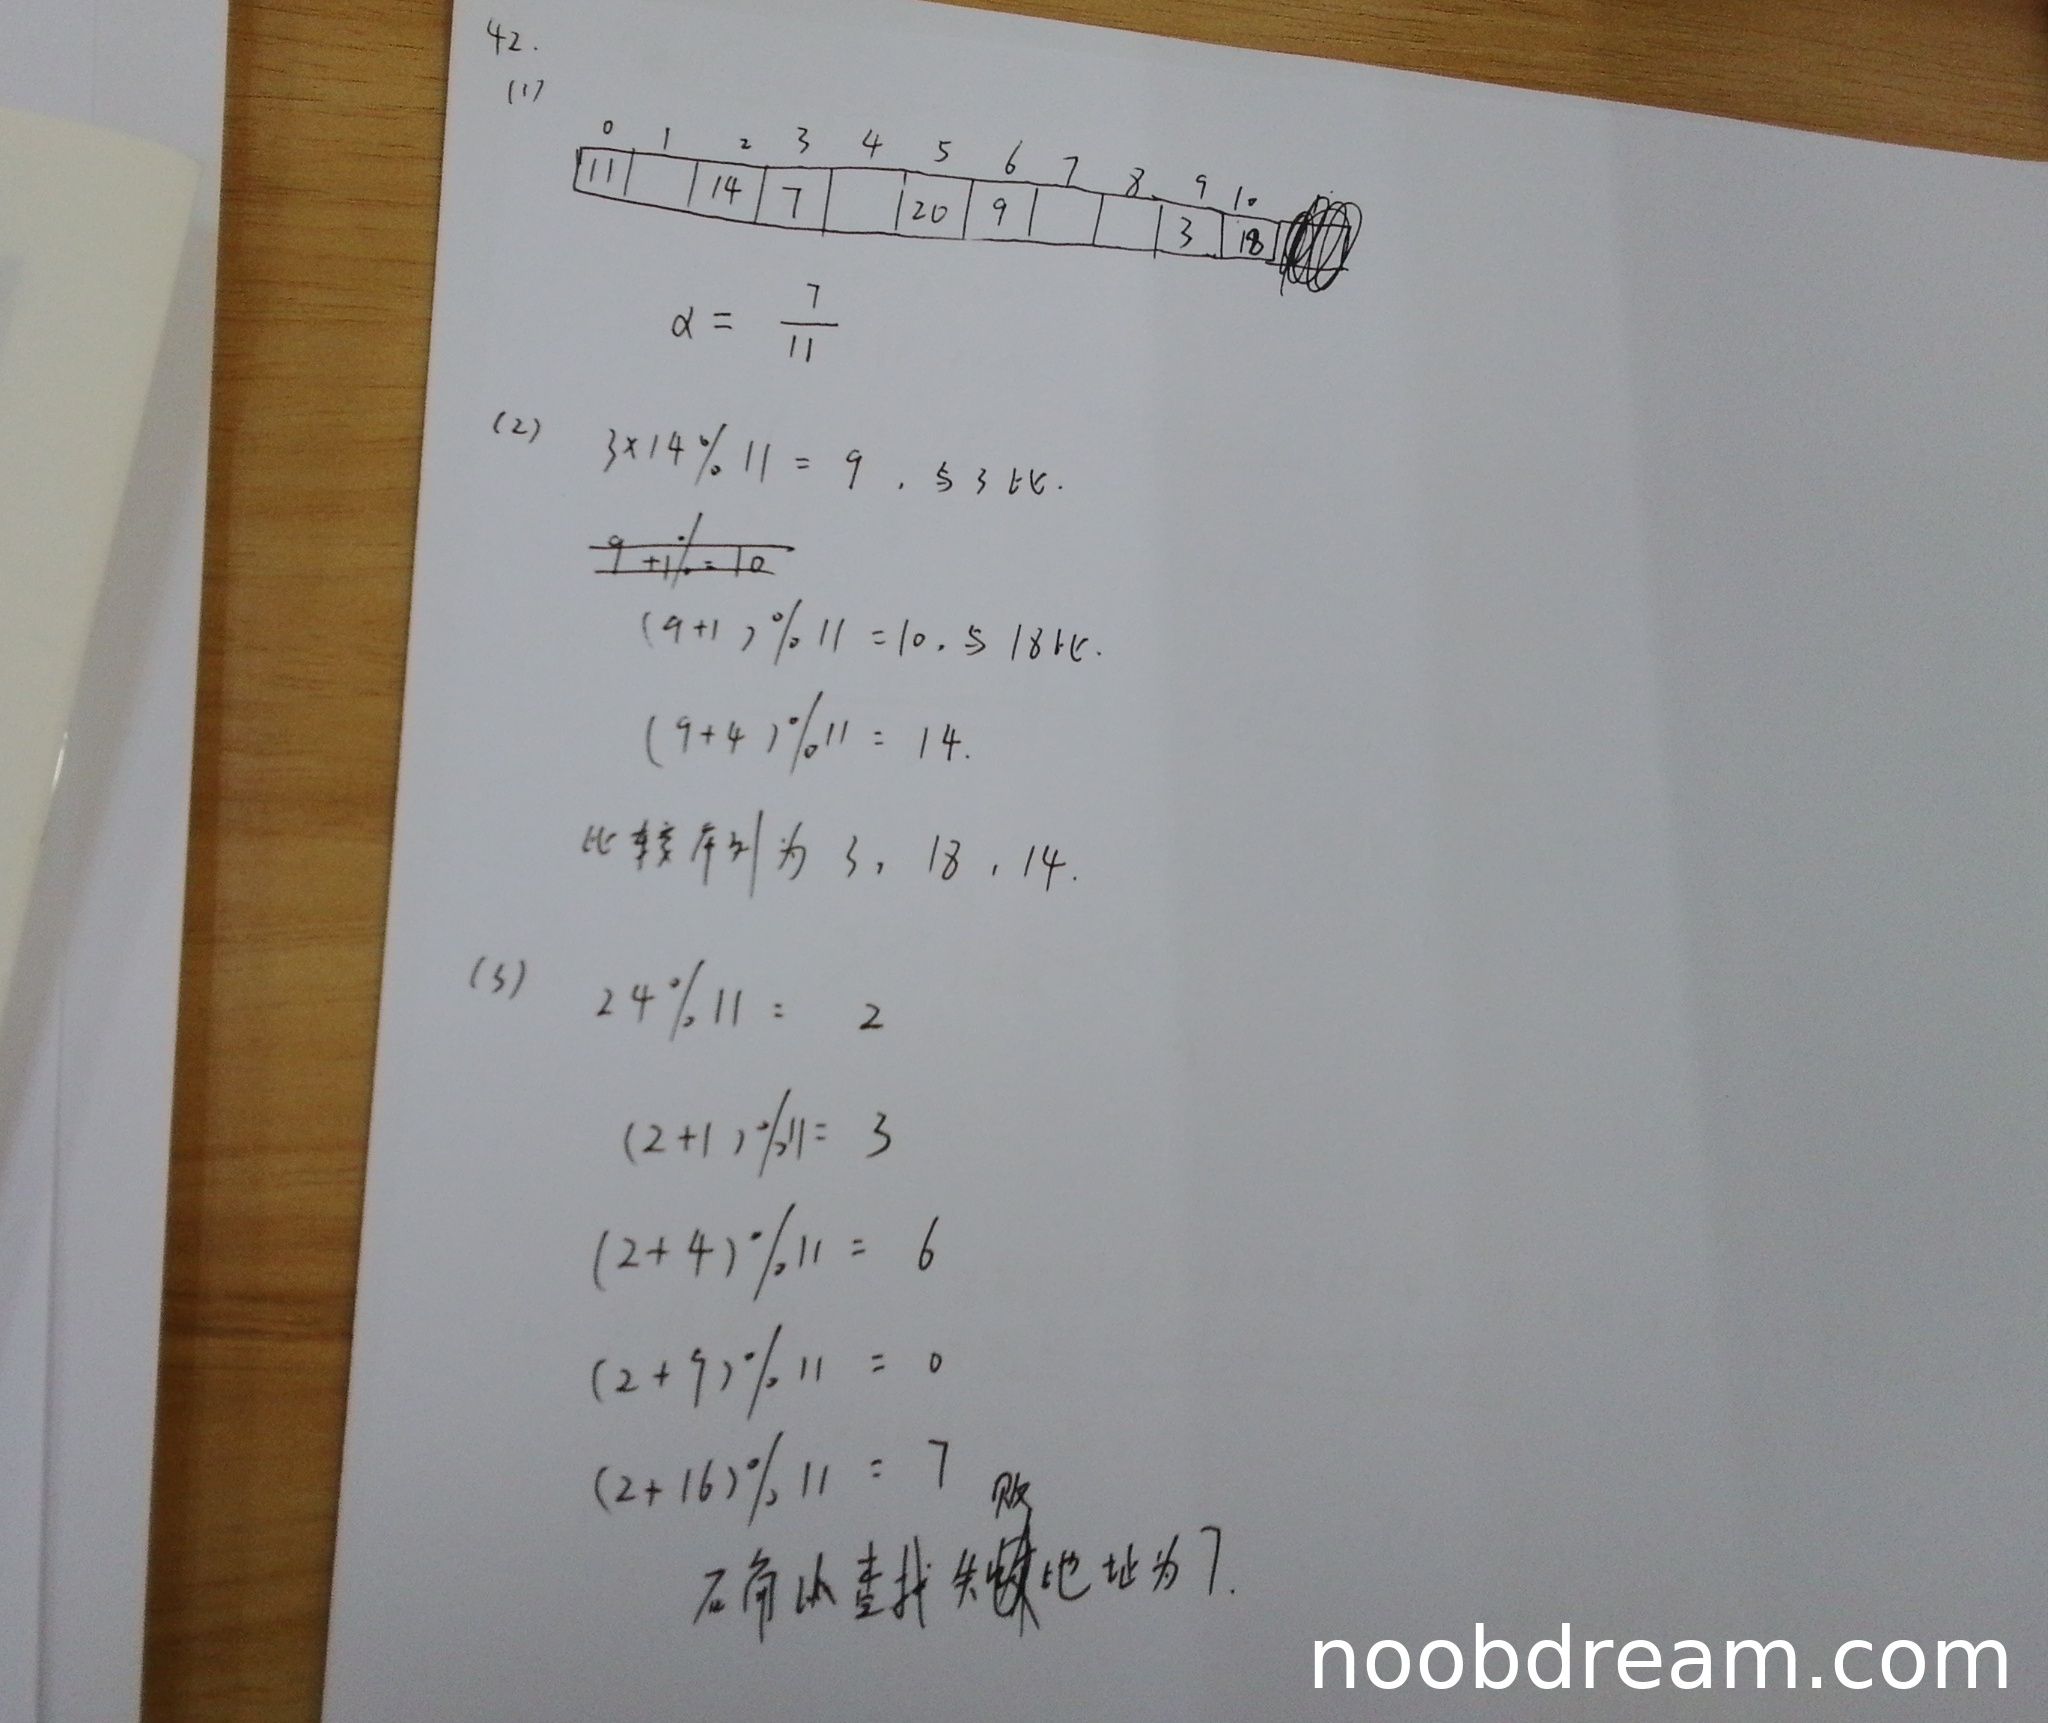 42.
(1)
0 1 2 3 4 5 6 7 8 9 10
11 14 7 20 9 3 18
α = 7/11
(2) 3×14%11 = 9 , 与3比.
9+1%=10
(9+1)%11=10. 与18比.
(9+4)%11 = 14.
比较序列为 3, 18, 14.
(3) 24%11= 2
(2+1)%11= 3
(2+4)%11 = 6
(2+9)%11 = 0
(2+16)%11 = 7
查找失败地址为7.
noobdream.com